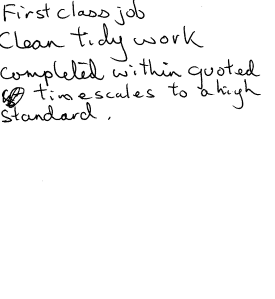 First class job
Clean tidy work
completed within quoted
timescales to a high
standard.